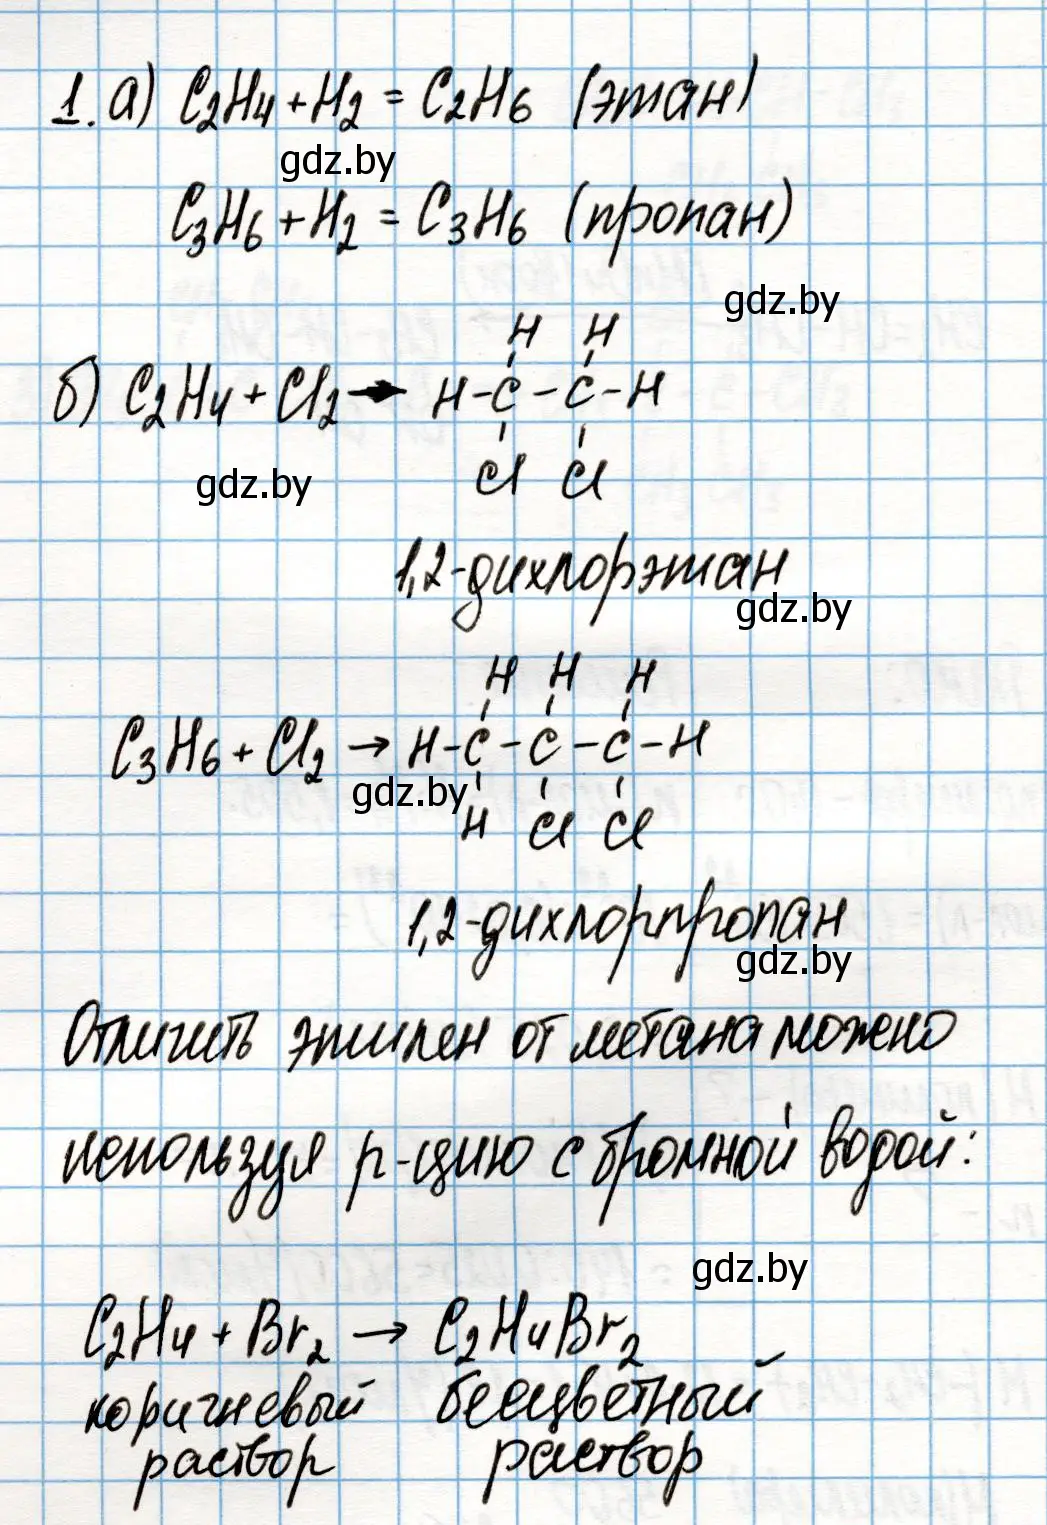 1. а) C2H4 + H2 = C2H6 (этан)
gdz.by
C3H6 + H2 = C3H6 (пропан)
gdz.by
H H
б) C2H4 + Cl2 → H - C - C - H
Cl Cl
gdz.by
1,2-дихлорэтан
gdz.by
H H H
C3H6 + Cl2 → H - C - C - C - H
gdz.by
H Cl Cl
1,2-дихлорпропан
gdz.by
Отличить этилен от метана можно
используя р-цию с бромной водой:
gdz.by
C2H4 + Br2 → C2H4Br2
коричневый бесцветный
раствор раствор